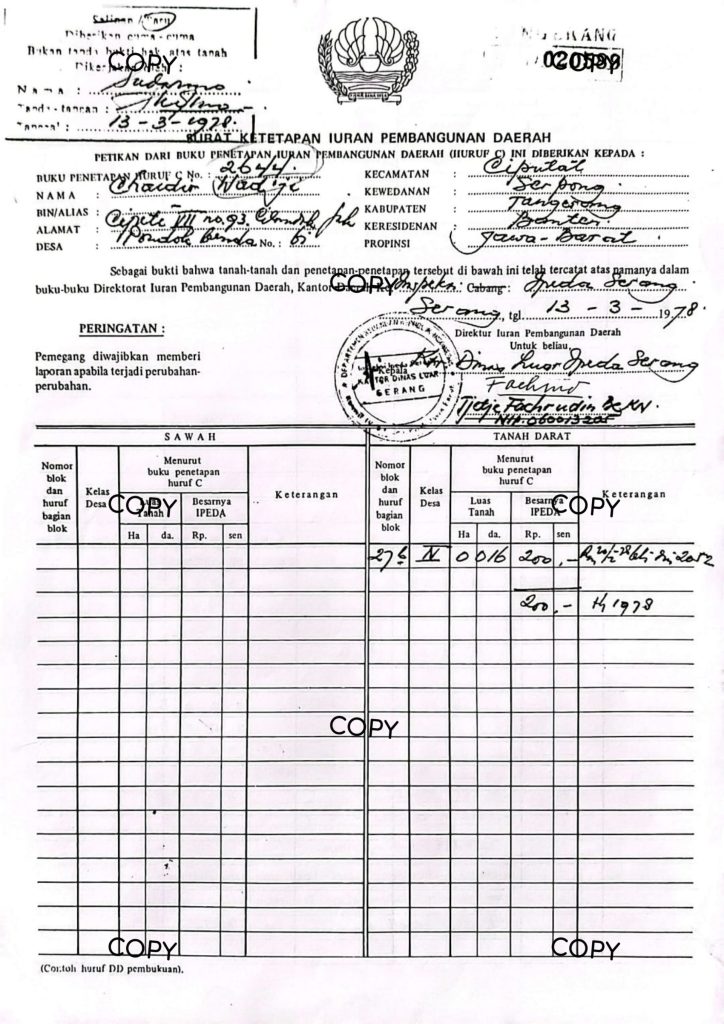 Salinan /
Diberikan cuma - cuma
Bukan tanda bukti hak atas tanah
COPY
Nama : Sudarmo
Tanda-tangan :
Tanggal : 13-3-1978.
NGERANG
COPY
SURAT KETETAPAN IURAN PEMBANGUNAN DAERAH
PETIKAN DARI BUKU PENETAPAN IURAN PEMBANGUNAN DAERAH (HURUF C) INI DIBERIKAN KEPADA :
BUKU PENETAPAN HURUF C No. : 2644.
NAMA :
BIN/ALIAS :
ALAMAT : Cipete III no. 93.
DESA : Pondok benda No. : 6
KECAMATAN : Ciputat
KEWEDANAN : Serpong
KABUPATEN : Tangerang
KERESIDENAN : Banten
PROPINSI : Jawa-Barat
Sebagai bukti bahwa tanah-tanah dan penetapan-penetapan tersebut di bawah ini telah tercatat atas namanya dalam
buku-buku Direktorat Iuran Pembangunan Daerah, Kantor COPY Inspeksi Cabang : Ipeda Serang.
Serang, tgl. 13 - 3 - 1978.
Direktur Iuran Pembangunan Daerah
Untuk beliau,
Dinas Luar Ipeda Serang
PERINGATAN :
Pemegang diwajibkan memberi
laporan apabila terjadi perubahan-
perubahan.
Kepala
KANTOR DINAS LUAR
SERANG
Tjetje Fachrudin
NIP. 060013205
SAWAH
Nomor blok dan huruf bagian blok
Kelas Desa
Menurut buku penetapan huruf C
Luas Tanah
Besarnya IPEDA
Keterangan
Ha da. Rp. sen
COPY
TANAH DARAT
Nomor blok dan huruf bagian blok
Kelas Desa
Menurut buku penetapan huruf C
Luas Tanah
Besarnya IPEDA
Keterangan
Ha da. Rp. sen
COPY
27 b IV 0 016 200 ,-
200 ,- 1978
COPY
COPY
COPY
(Contoh huruf DD pembukuan).